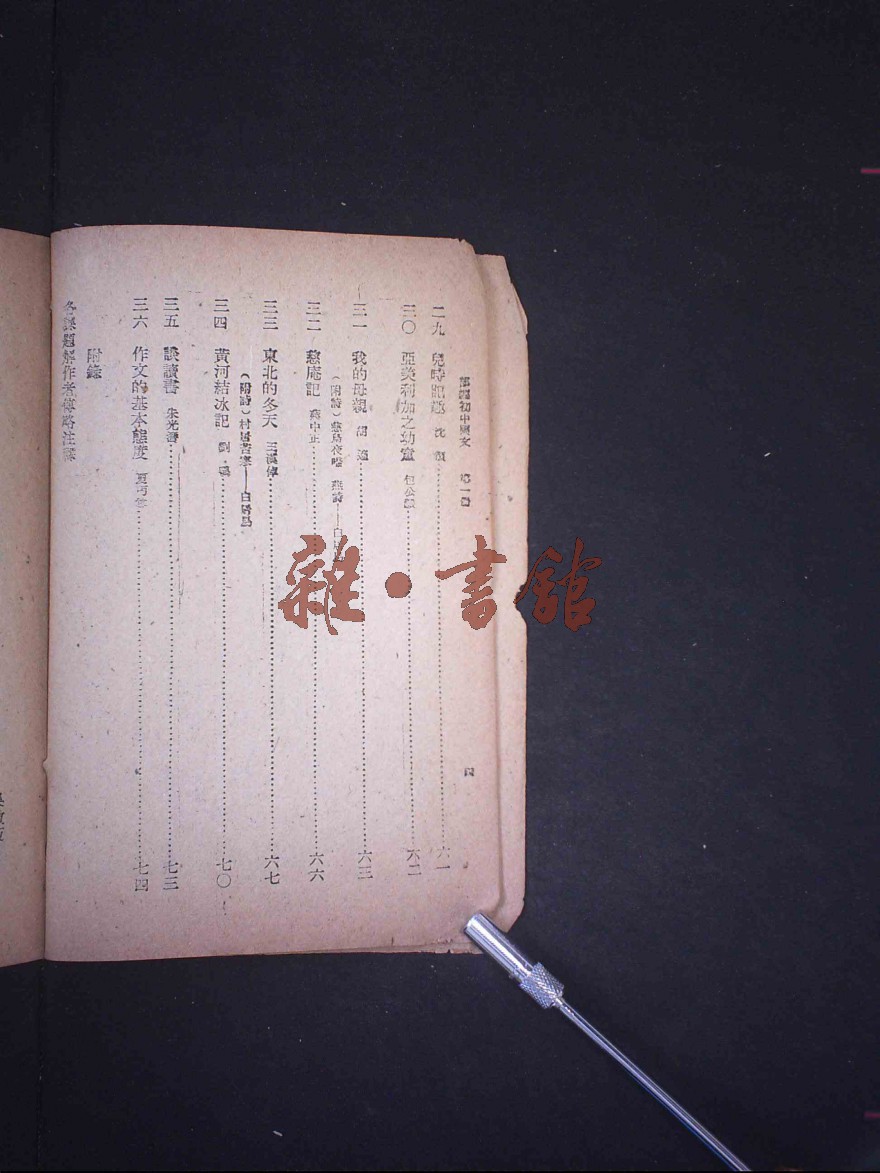 初中國文 第一
四
二九 兒時記趣 沈復……六一
三〇 亞美利加之幼童 包公……六二
三一 我的母親 胡適……六三
(附詩)慈烏夜啼 燕詩——白
三二 慈庵記 蔣中正……六六
三三 東北的冬天 王漢倬……六七
(附詩)村居苦寒——白居易
三四 黃河結冰記 劉鶚……七〇
三五 談讀書 朱光潛……七三
三六 作文的基本態度 夏丏尊……七四
附錄
各課題解作者傳略注釋
雜·書館